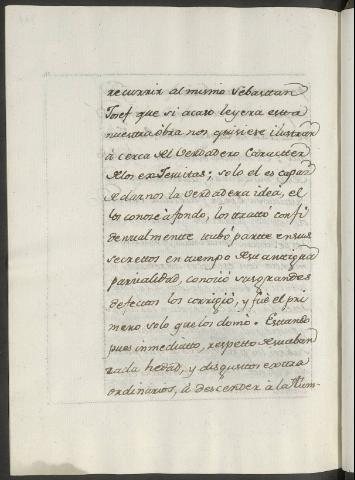 recurrir al mismo Sebastian
Josef que si acaso leyera esta
nuestra obra nos quisiese ilustrar
à cerca del verdadero Caracter
delos exJesuitas; solo el es capaz
de darnos la verdadera idea, el
los conoce à fondo, los trattó confi
denzialmente tubó parte en sus
secrettos en tiempo de su antigua
parzialidad, conoció sus grandes
defectos los corrigió, y fue el pri
mero solo que los domó. Estando
pues inmediatto, respeto de su aban
zada hedad, y disgustos extra
ordinarios, à descender à la tum-